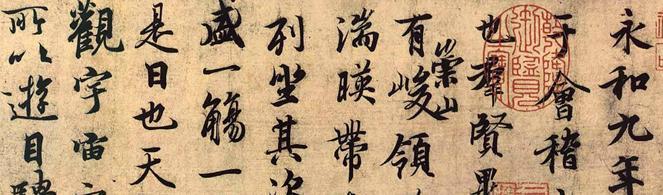 永和九年
于會稽
也羣賢畢
有崇山峻領
湍暎帶
列坐其次
盛一觴一
是日也天
觀宇宙之
所以遊目騁